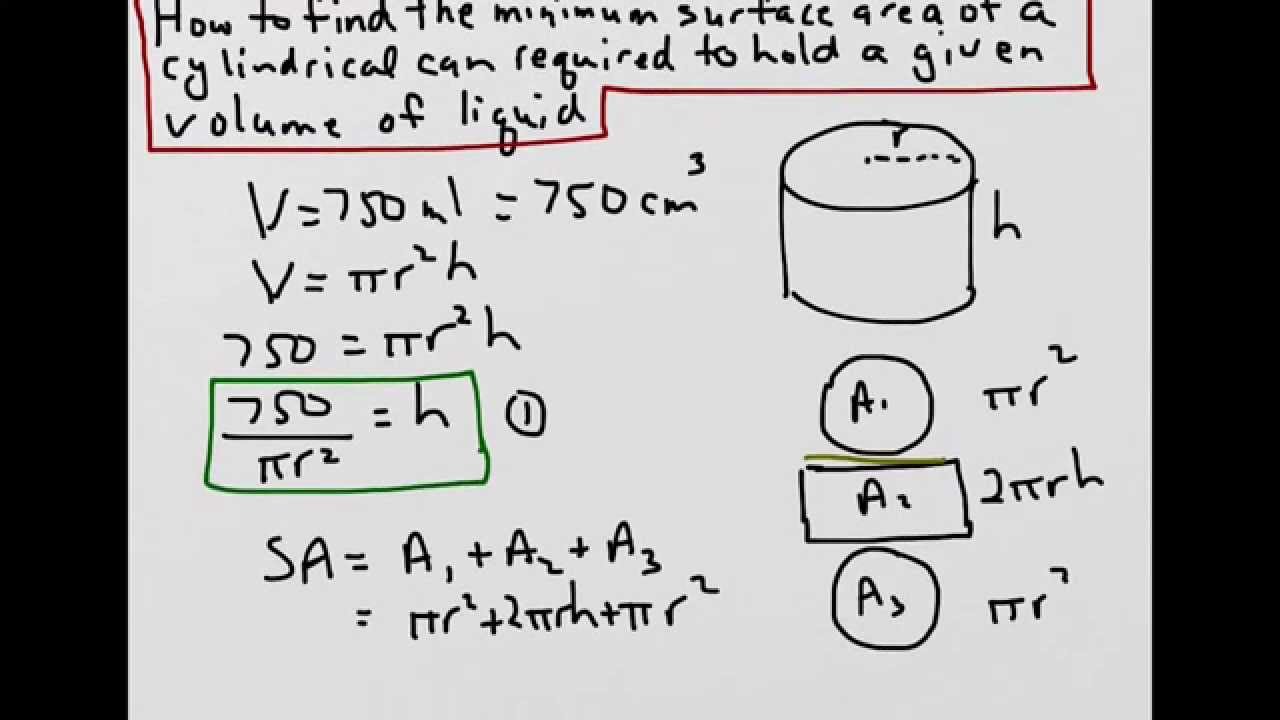 How to find the minimum surface area of a
cylindrical can required to hold a given
volume of liquid
V = 750 ml = 750 cm³
V = πr²h
750 = πr²h
750/πr² = h ①
SA = A₁ + A₂ + A₃
= πr² + 2πrh + πr²
r
h
A₁ πr²
A₂ 2πrh
A₃ πr²